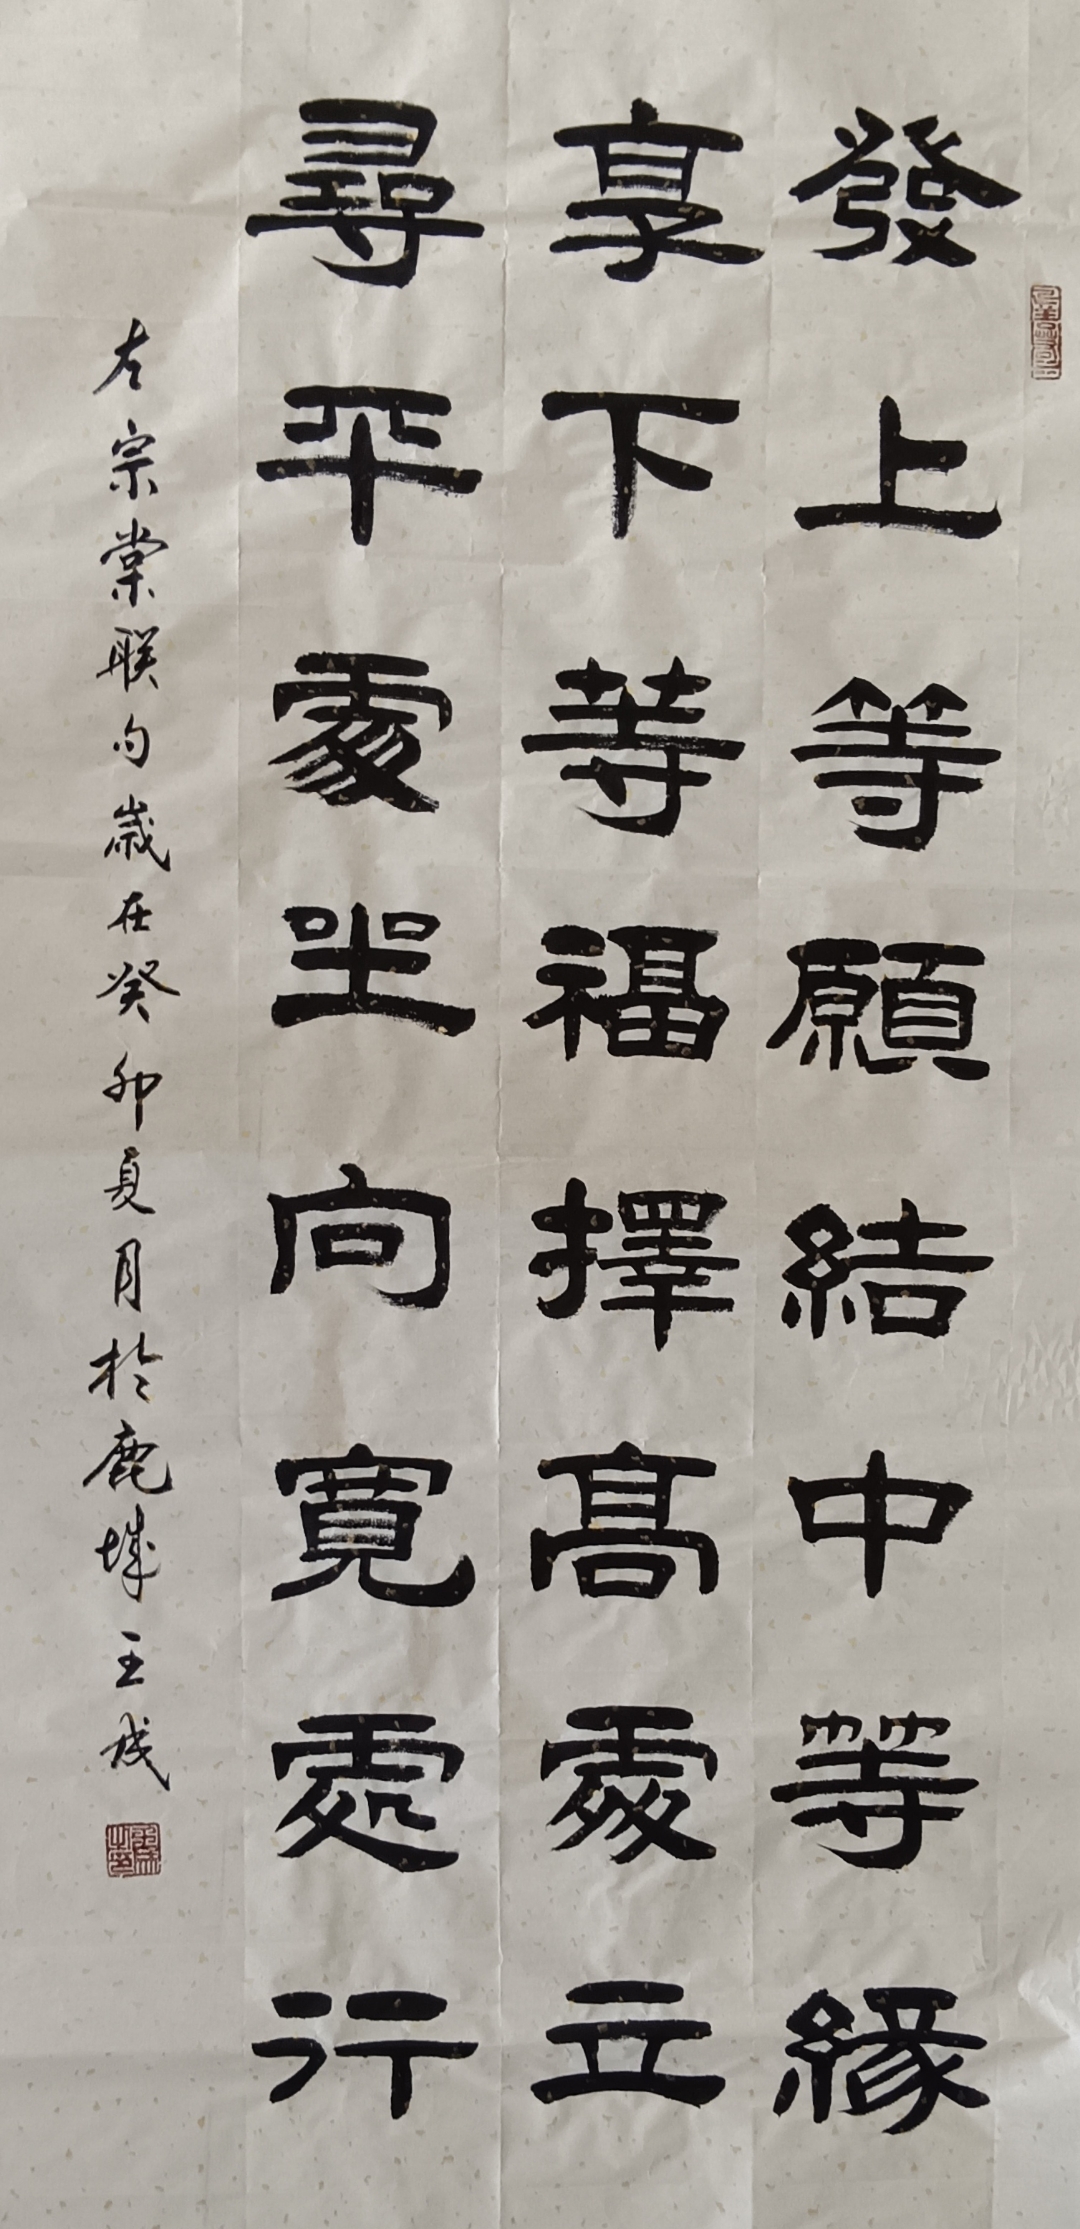 發上等願結中等緣
享下等福擇高處立
尋平處坐向寬處行
左宗棠联句歲在癸卯夏月於鹿城王成